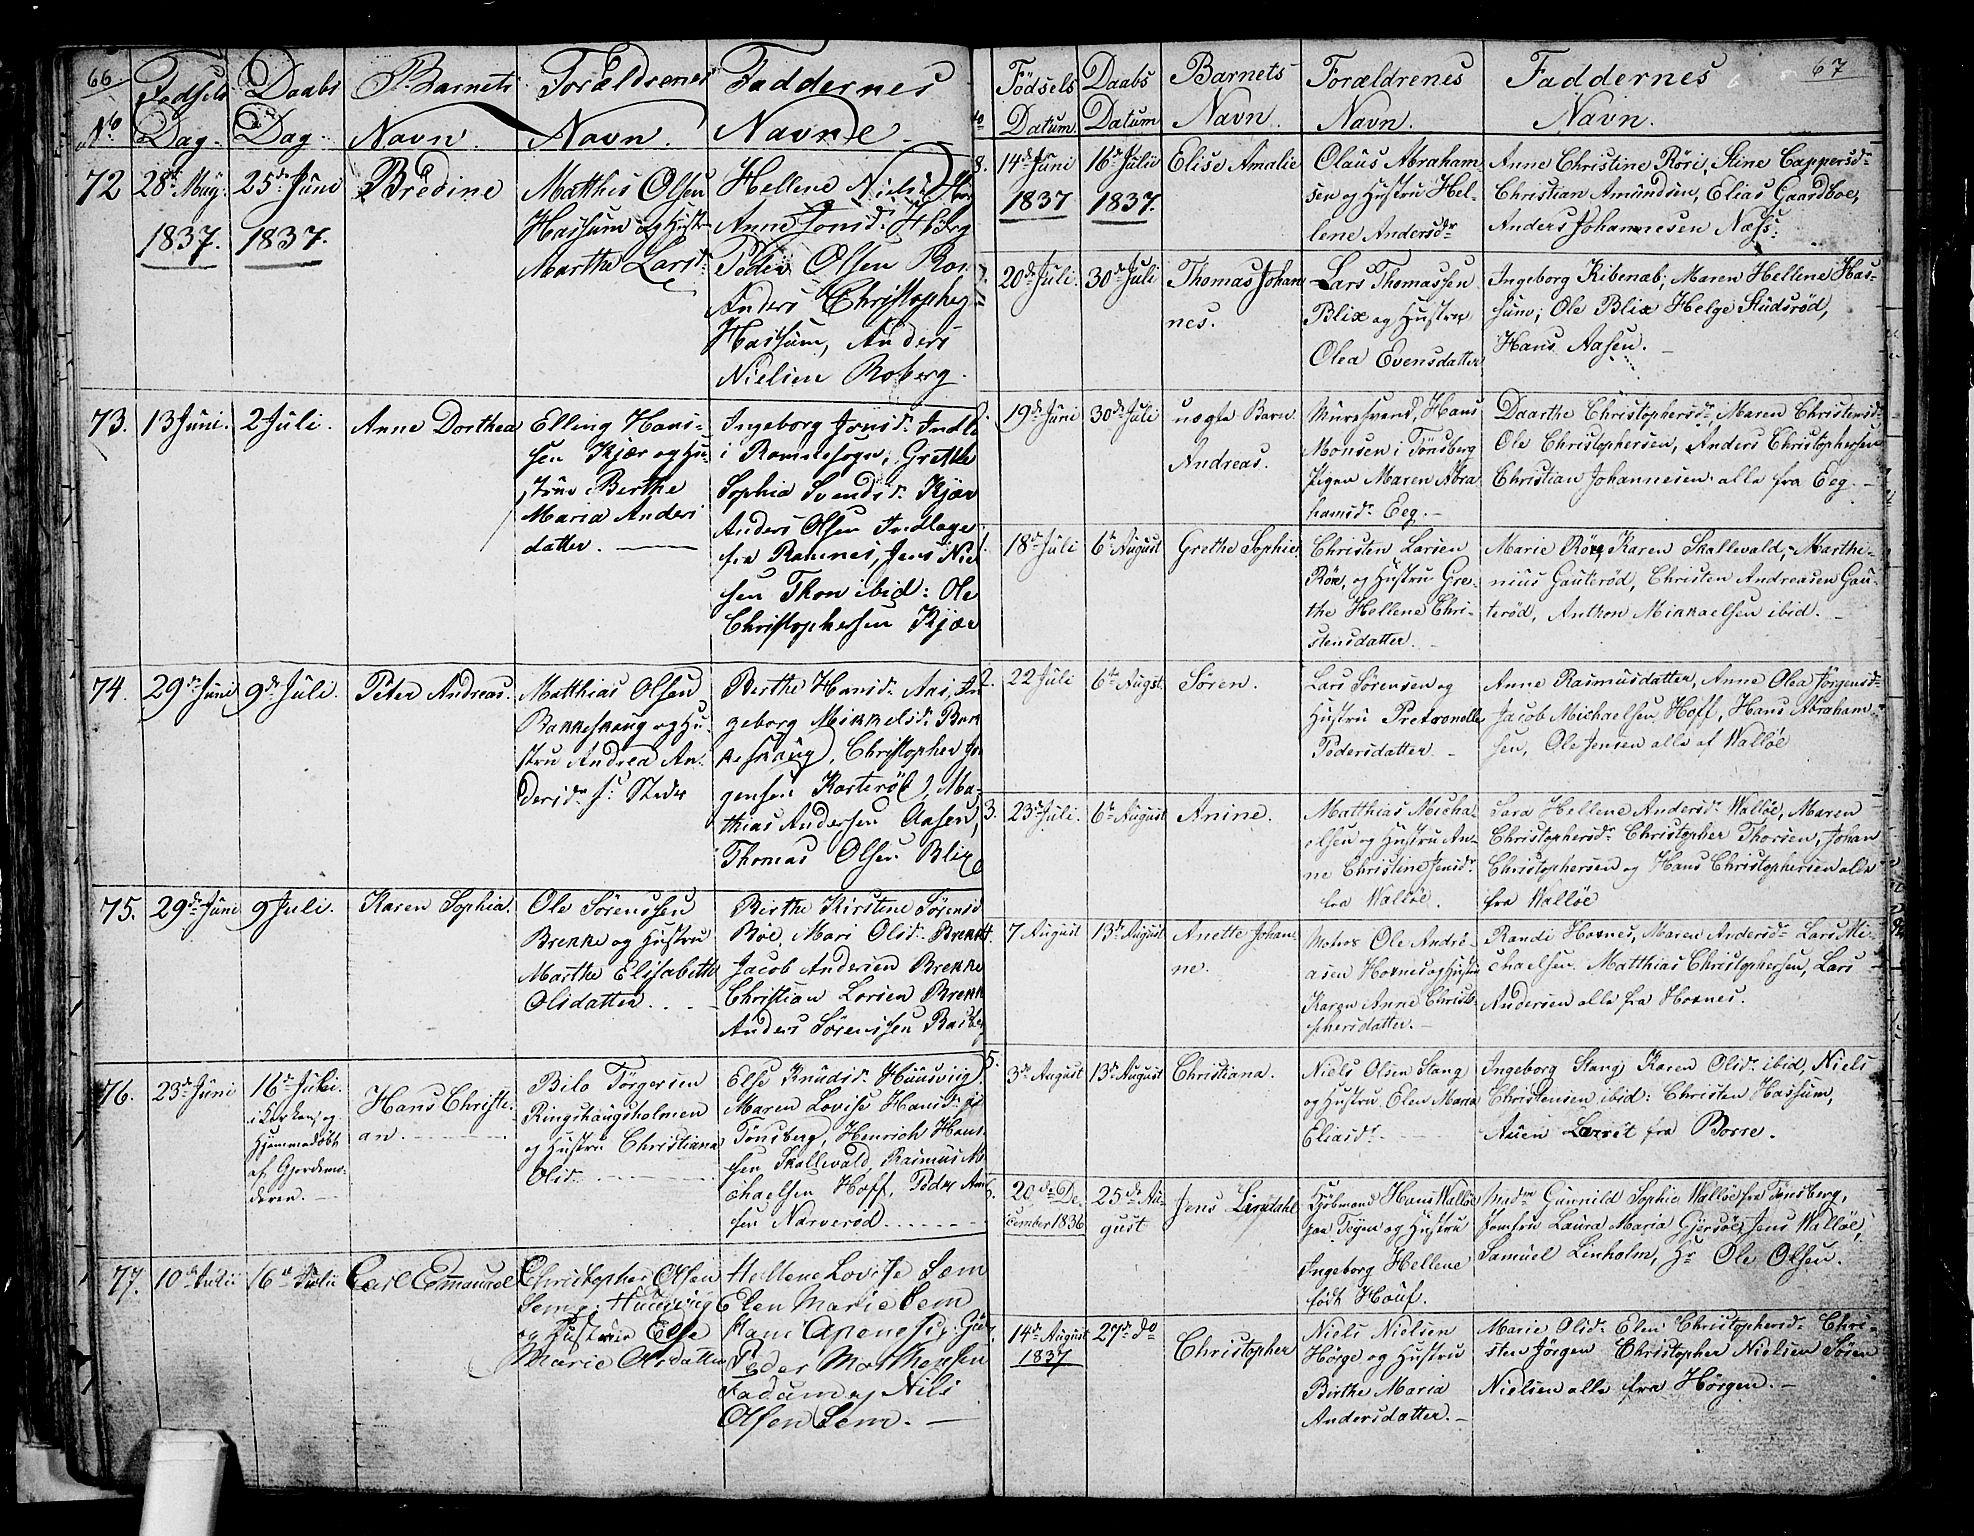 66
Fødsels Daabs Barnets Forældrenes Faddernes
No Dag. Dag. Navn. Navn. Navne
72 28de May. 1837. 25de Juni 1837. Bredine
Matthis Olsen
Hassum og Hustr
Marthe Larsd.
Hellene Nielsd.
Anne Jonsd.
Peder Olsen
Anders Christophers
Hassum, Anders
Nielsen Roberg.
73. 13 Juni. 2 Juli. Anne Dorthea
Elling Han-
sen Kjær og Hu-
strue Berthe
Maria Anders
datter.
Ingeborg Jonsd. Indla
i Ramnessogn, Grethe
Sophia Svendsd. Kjær
Anders Olsen Indlage
fra Ramnes, Jens Niel
sen Thon ibid: Ole
Christophersen Kjær
74. 29de Juni 9de Juli. Peter Andreas.
Matthias Olsen
Bakkeskaug og Hu-
stru Andrea An-
dersd.
Berthe Hansd. Aas, In
geborg Mikkelsd. Bak
keskaug, Christopher Jør
gensen Karterød, Ma-
thias Andersen Aasen,
Thomas Olsen Blix
75. 29de Juni 9 Juli. Karen Sophia.
Ole Sørenssen
Brekke og Hustru
Marthe Elisabeth
Olsdatter.
Birthe Kirstine Sørensd
Bøe, Mari Olsd. Brekke
Jacob Andersen Brekke
Christian Larsen Brekk
Anders Sørenssen Bakke
76. 23de Juni 16de Juli.
i Kirken, og
Hjemmedøbt
af Gjordemo-
deren.
Hans Christi-
an.
Bilo Torgersen
Ringshaugsholmen
og Hustru Christiana
Olsd.
Else Knudsd. Huusviig
Maren Lovise Hansd.
Tønsberg, Henrich Hans-
sen Skallevald, Rasmus Mi
chaelsen Hoff, Peder And
sen Narverød.
77. 10de Julii 16de Julii Carl Emanuel
Christopher Olsen
Sem i Huusviig
og Hustrue Else
Marie Olsdatter
Hellene Lovise Sem
Elen Marie Sem
Hans
Peder Mathesen
Fadum og Nils
Olsen Sem.
67
Fødsels Daabs Barnets Forældrenes Faddernes
Datum. Datum Navn. Navn. Navn.
8. 14de Juni 1837 16de Julii 1837. Elise Amalie
Olaus Abraham-
sen og Hustru Hel-
lene Andersdr
Anne Christine Røri, Stine Cappersdr
Christian Amundsen, Elias Gaardboe,
Anders Johannesen Næss.
20de Juli. 30de Juli Thomas Johan
nes.
Lars Thomassen
Blix og Hustru
Olea Evensdatter
Ingeborg Kibenab, Maren Hellene Has-
sum, Ole Blix Helge Studsrød,
Hans Aasen.
19de Juni 30de Juli uægte Barn
Andreas.
Muursvend, Hans
Monsen i Tønsberg
Pigen Maren Abra
hamsdr Eeg.
Daarthe Christophersdr Maren Christensdr
Ole Christophersen, Anders Christophersen
Christian Johannesen alle fra Eeg.
18de Juli 6te August Grethe Sophie
Christen Larsen
Røre, og Hustru Gre-
the Hellene Chri-
stensdatter
Marie Røre, Karen Skallevald, Marthi-
nius Gauterød, Christen Andreasen Gau-
terød, Anthon Mikkaelsen ibid.
2. 22 Juli 6te Augst. Søren.
Lars Sørensen og
Hustru Pretronelle
Pedersdatter
Anne Rasmusdatter, Anne Olea Jørgensdr
Jacob Michaelsen Hoff, Hans Abraham-
sen, Ole Jensen alle af Walløe
3. 23de Juli. 6te August Anine.
Matthias Micha-
elsen og Hustru An-
ne Christine Jensdr
fra Walløe.
Sara Hellene Andersdr Walløe, Maren
Christophersdr Christopher Thorsen, Johan
Christophersen og Hans Christophersen alle
fra Walløe
7 August 13de August Anette Johan-
ne.
Matros Ole Andre-
asen Hoxnes og Hustru
Karen Anne Christo
phersdatter.
Randi Hoxnes, Maren Andersdr Lars Mi-
chaelsen Matthias Christophersen, Lars
Andersen alle fra Hoxnes.
5. 3de August 13de August Christiana.
Niels Olsen Stang
og Hustru Elen Maria
Eliasdr
Ingeborg Stang, Karen Olsdr ibid, Niels
Christensen ibid: Christen Hassum,
fra Borre.
20de De-
cember 1836 25de Au-
gust Jens Lindahl
Kjøbmand Hans Walløe
paa Teyen og Hustru
Ingeborg Hellene
født Houf.
Gunnild Sophie Walløe fra Tønsberg,
Jomfru Laura Maria Gjersøe, Jens Walløe,
Samuel Linholm, Hr Ole Olsen.
14de August
1837 27de do Christopher
Niels Nielsen
Hørge og Hustru
Birthe Maria
Andersdatter.
Marie Olsdr Elen Christophersdr Chri-
sten Jørgen Christopher Nielsen Søren
Nielsen alle fra Hørgen.